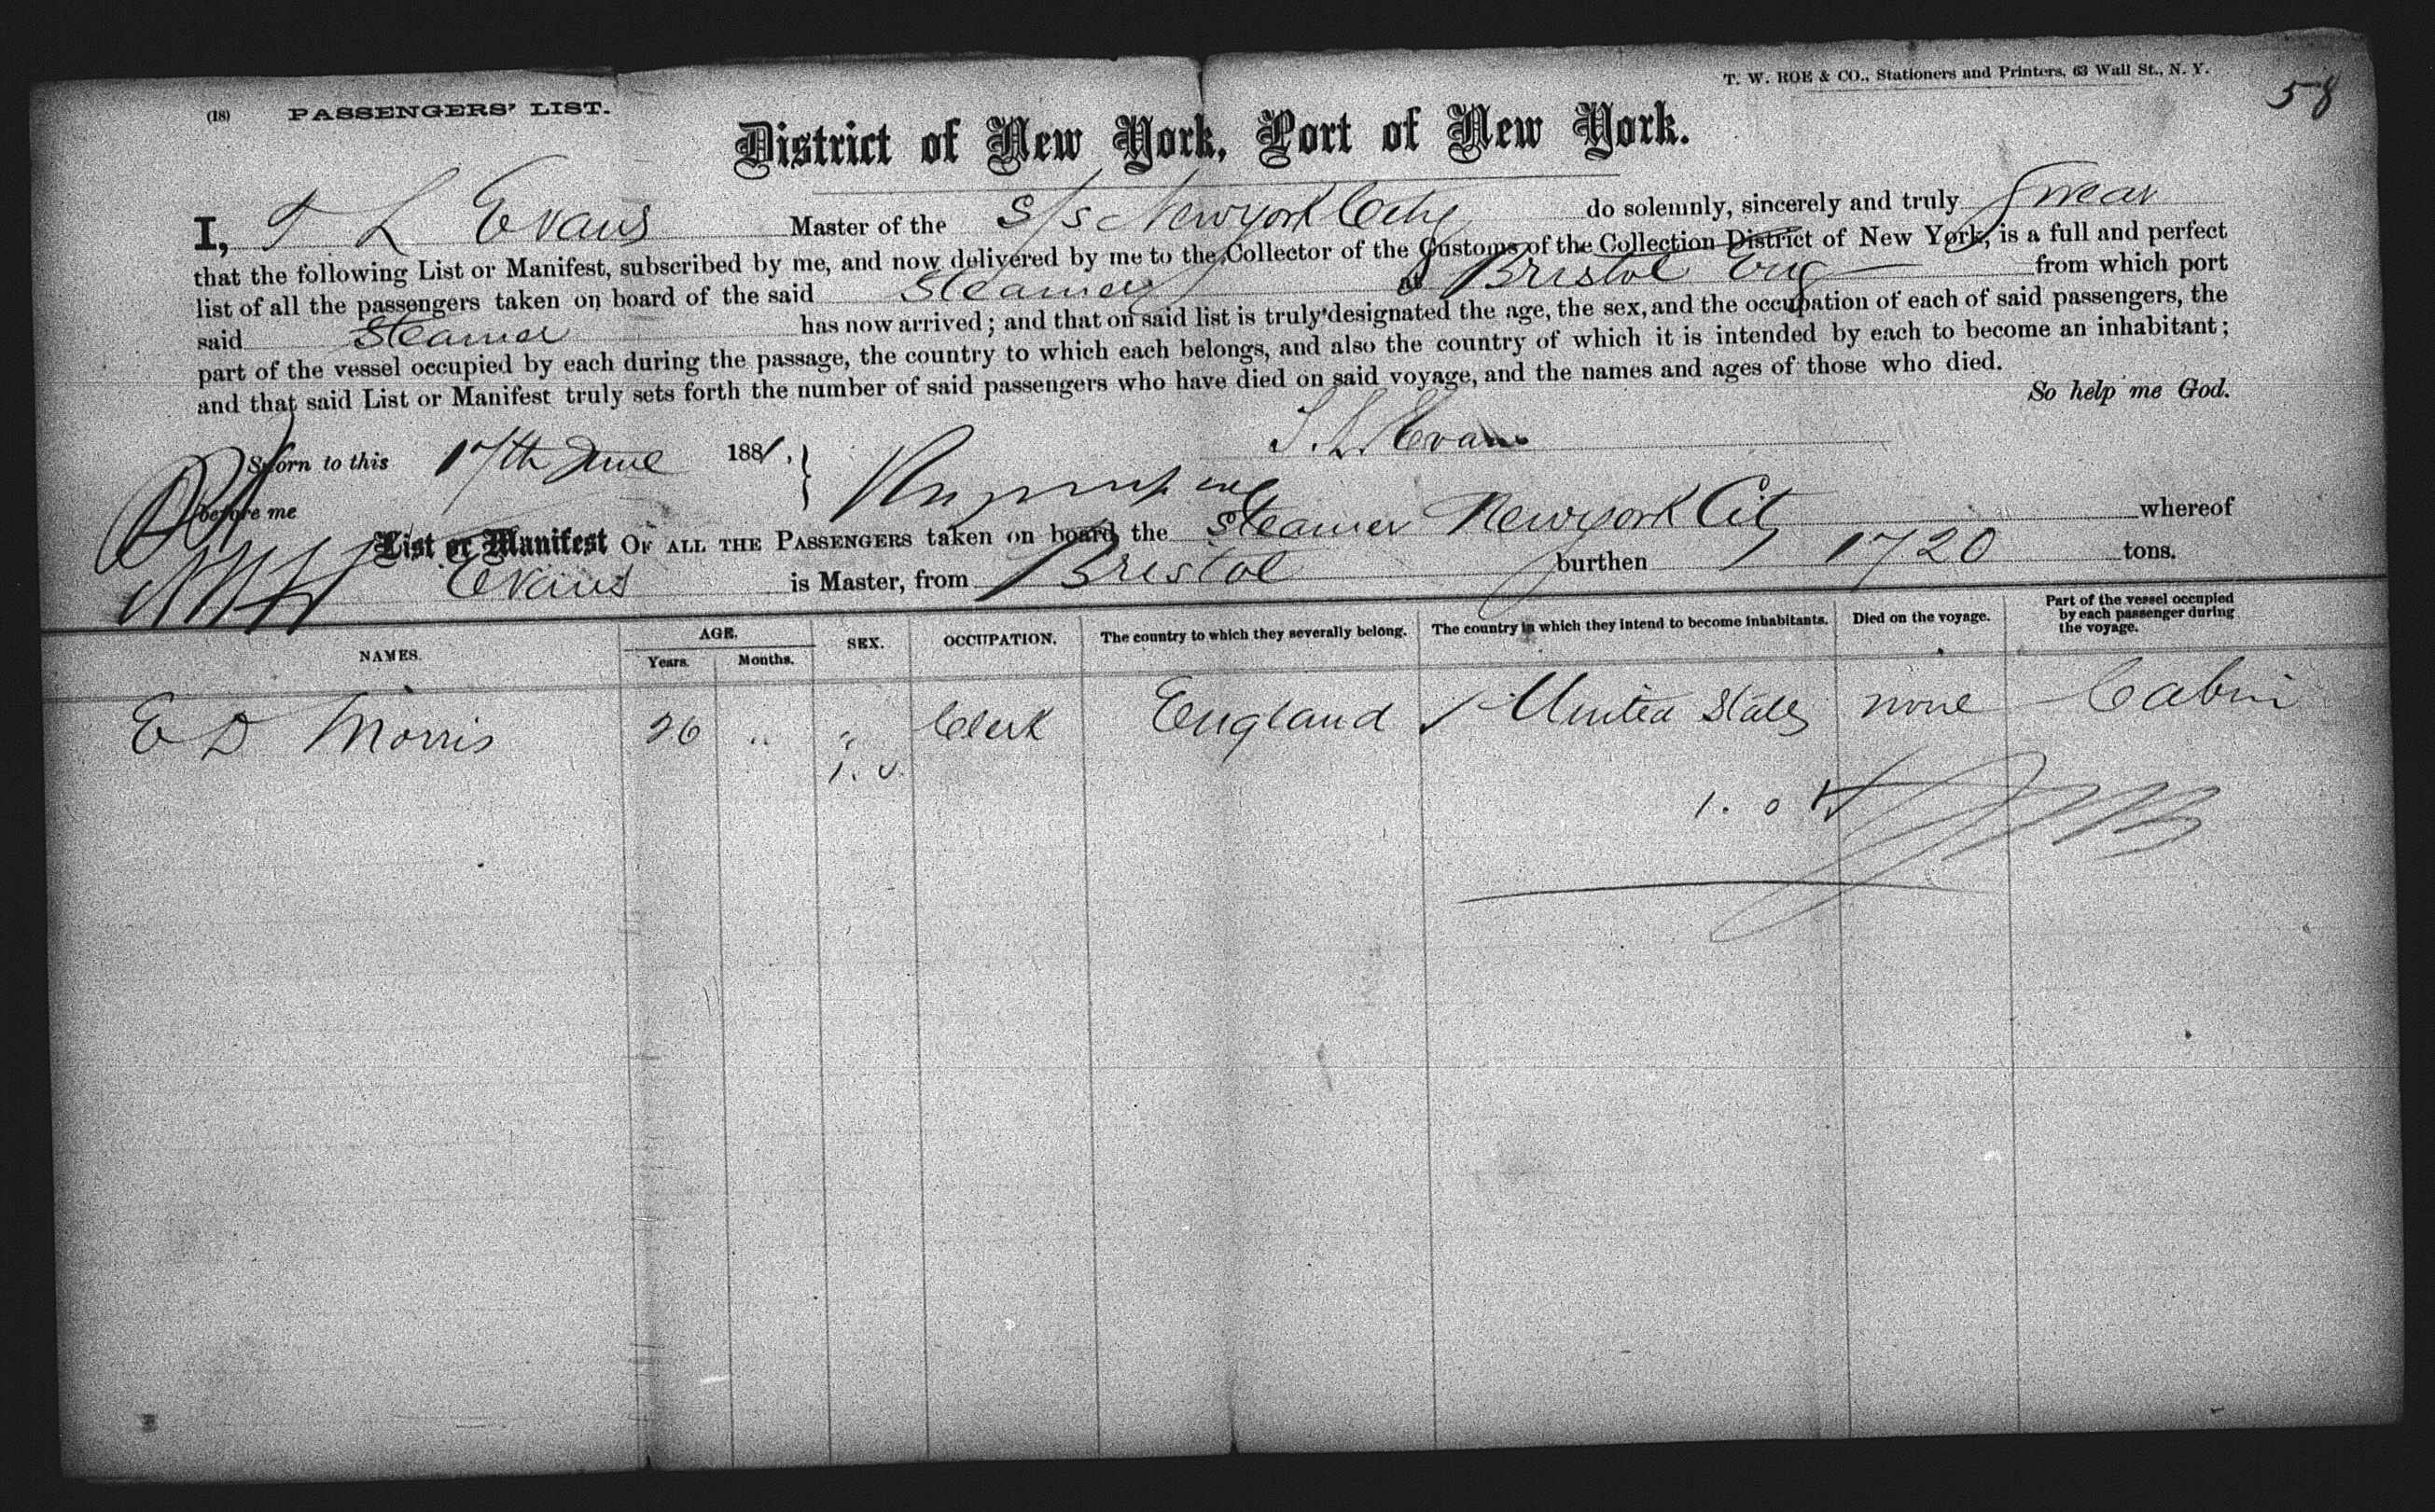 T. W. ROE & CO., Stationers and Printers, 63 Wall St., N. Y.
58
(18) PASSENGERS' LIST.
District of New York, Port of New York.
I, T L Evans Master of the S/S Newyork City do solemnly, sincerely and truly Swear
that the following List or Manifest, subscribed by me, and now delivered by me to the Collector of the Customs of the Collection District of New York, is a full and perfect
list of all the passengers taken on board of the said Steamer at Bristol Eng from which port
said Steamer has now arrived; and that on said list is truly designated the age, the sex, and the occupation of each of said passengers, the
part of the vessel occupied by each during the passage, the country to which each belongs, and also the country of which it is intended by each to become an inhabitant;
and that said List or Manifest truly sets forth the number of said passengers who have died on said voyage, and the names and ages of those who died.
So help me God.
T. L. Evans
Sworn to this 17th June 1881,
before me
List or Manifest OF ALL THE PASSENGERS taken on board the Steamer Newyork City whereof
Evans is Master, from Bristol burthen 1720 tons.
NAMES. AGE. Years. Months. SEX. OCCUPATION. The country to which they severally belong. The country in which they intend to become inhabitants. Died on the voyage. Part of the vessel occupied by each passenger during the voyage.
E D Morris 26 " " Clerk England / United States none Cabin
1. 0.
1. 0